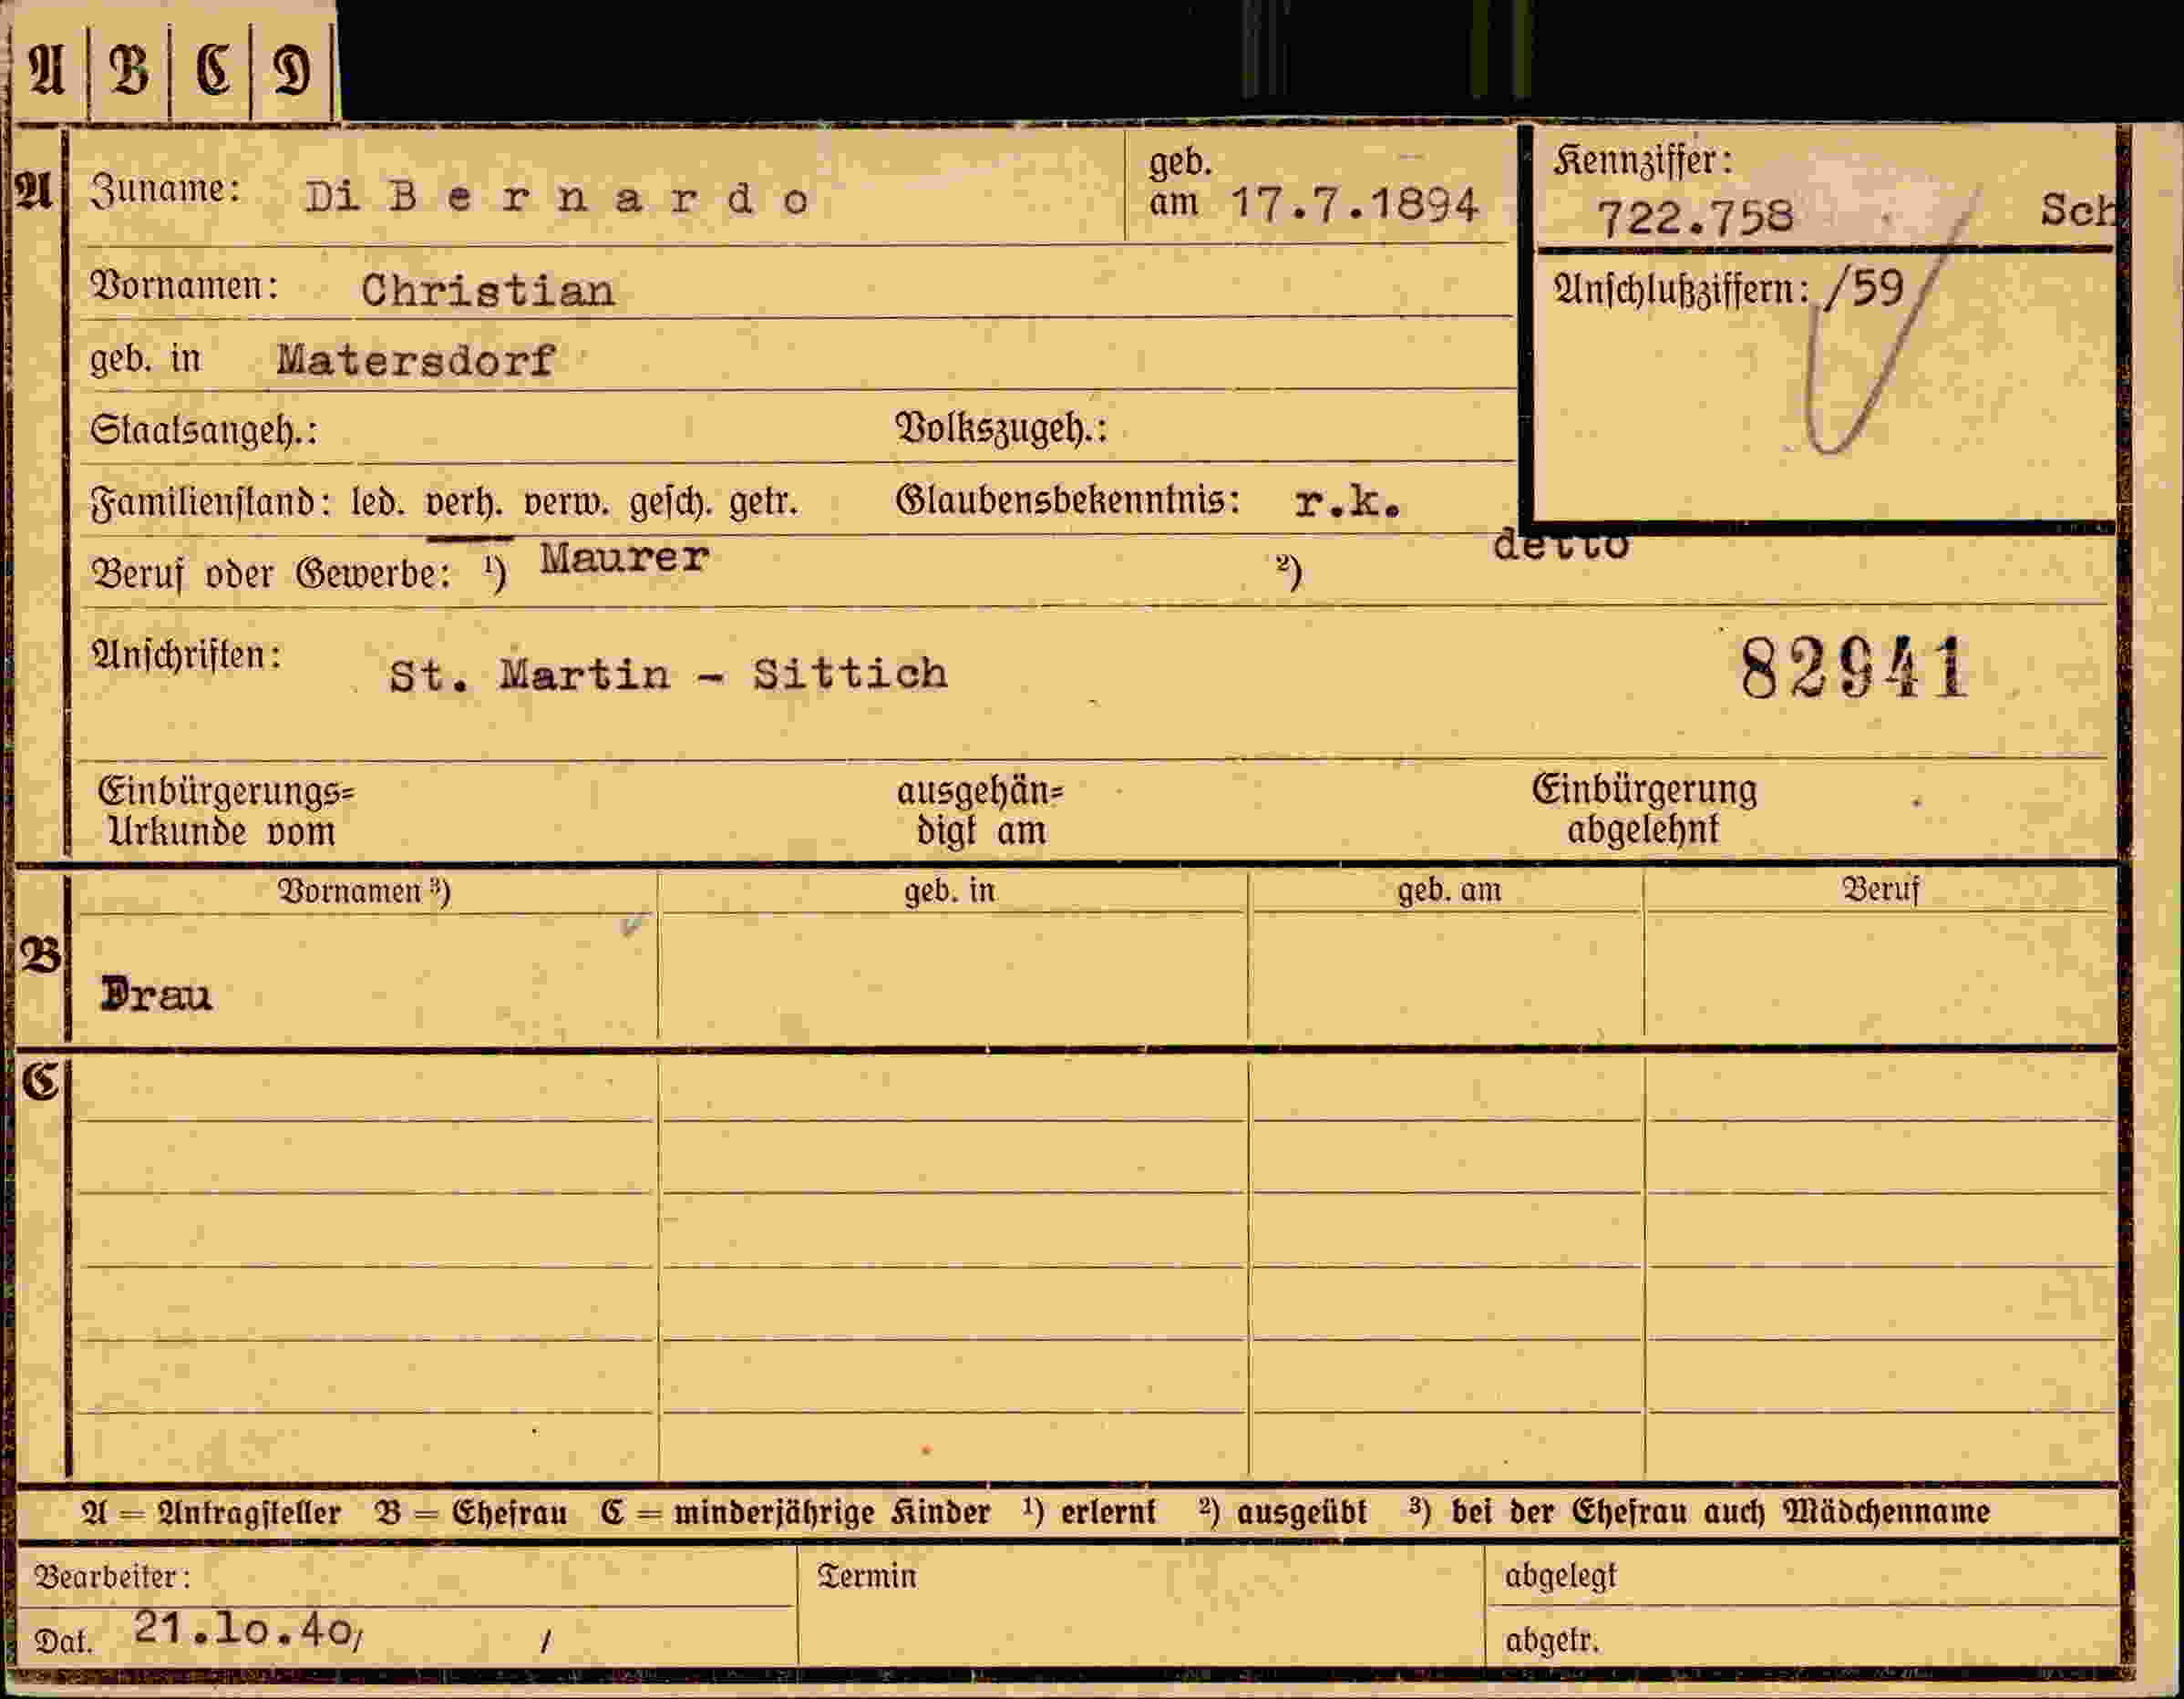 A B C D
A Zuname: Di B e r n a r d o geb. am 17.7.1894
Kennziffer: 722.758 Sch
Vornamen: Christian
Anschlußziffern: /59
geb. in Matersdorf
Staatsangeh.: Volkszugeh.:
Familienstand: led. verh. verw. gesch. getr. Glaubensbekenntnis: r.k.
Beruf oder Gewerbe: ¹) Maurer ²) detto
Anschriften: St. Martin - Sittich 82941
Einbürgerungs= ausgehän= Einbürgerung
Urkunde vom digt am abgelehnt
Vornamen ³) geb. in geb. am Beruf
B
Frau
C
A = Antragsteller B = Ehefrau C = minderjährige Kinder ¹) erlernt ²) ausgeübt ³) bei der Ehefrau auch Mädchenname
Bearbeiter: Termin abgelegt
Dat. 21.10.40/ / abgetr.